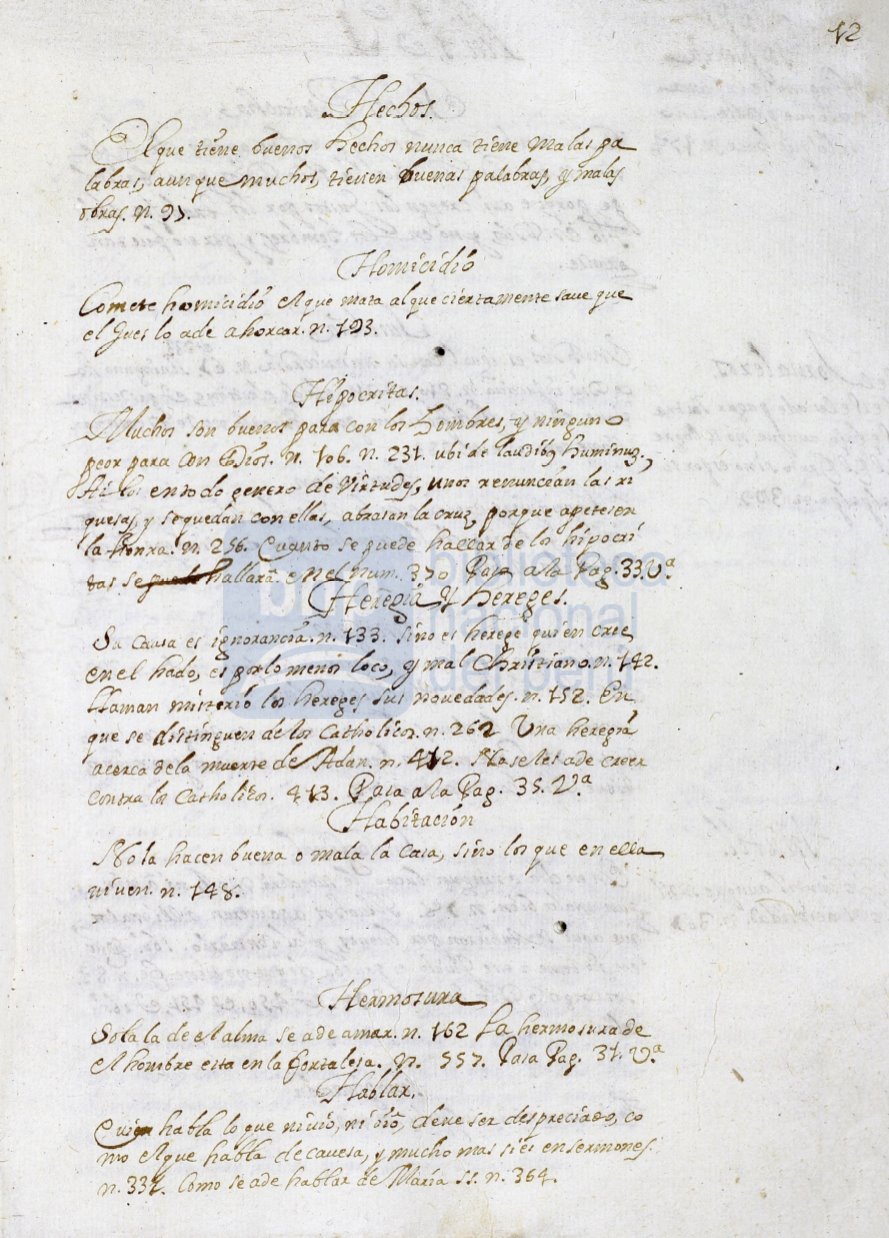 12
Hechos.
El que tiene buenos hechos nunca tiene malas pa
labras, aunque muchos, tienen buenas palabras, y malas
obras. n. 97.
Homicidio
Comete homicidio el que mata al que ciertamente save que
el Jues lo ade ahorcar. n. 193.
Hipocritas.
Muchos son buenos para con los hombres, y ninguno
peor para con Dios. n. 106. n. 231. ubi de laudibus huminuz.
en todo genero de Virtudes, unos renuncian las ri
quesas, y se quedan con ellas, abrasan la cruz, porque apetesen
la honra. n. 256. Cuanto se puede hallar de los hipocri
tas se hallara en el num. 370 Pasa a la Pag. 33. V.ª
Heregia y Hereges.
Su causa es ignorancia. n. 133. Sino es herege quien cree
en el hado, es por lo menos loco, y mal Christiano. n. 142.
Llaman misterio los hereges sus novedades. n. 152. En
que se distinguen de los Catholicos. n. 262 Una heregia
acerca de la muerte de Adan. n. 412. No se les ade creer
contra los Catholicos. 413. Pasa a la Pag. 35. V.ª
Habitación
No la hacen buena o mala la casa, sino los que en ella
viven. n. 148.
Hermosura
Sola la de el alma se ade amar. n. 162 La hermosura de
el hombre esta en la fortalesa. n. 557. Pasa Pag. 31. V.ª
Hablar.
Quien habla lo que ni vio, ni oio, deve ser despreciado, co
mo el que habla de cavesa, y mucho mas si es en sermones.
n. 331. Como se ade hablar de Maria ss. n. 364.
biblioteca
nacional
del perú